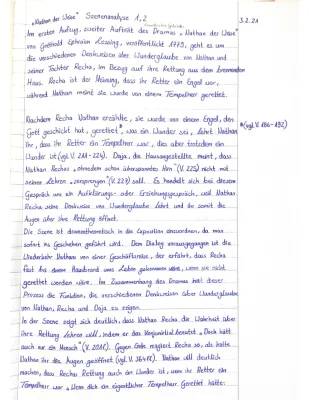 "Nathan der Weise" Szenenanalyse 1,2
3.2.21
Im ersten Aufzug, zweiter Auftritt des Dramas „Nathan der Weise"
von Gotthold Ephraim Lessing, veröffentlicht 1779, geht es um
die verschiedenen Denkweisen über Wunderglaube von Nathan und
seiner Tochter Recha, im Bezug auf ihre Rettung aus dem brennenden
Haus. Recha ist der Meinung, dass ihr Retter ein Engel war,
während Nathan meint sie wurde von einem Tempelherr gerettet.
Nachdem Recha Nathan erzählte, sie wurde von einem Engel, den
Gott geschickt hat, gerettet*, was ein Wunder sei, lehrt Nathan
*(vgl. V. 186-192)
ihr, dass ihr Retter ein Tempelherr war, dies aber trotzdem ein
Wunder ist (vgl. V. 211-224). Daja, die Hausangestellte, meint, dass
Nathan Rechas „ohnedem schon überspanntes Hirn" (V. 225) nicht mit
seinen Lehren „zersprengen" (V. 227) soll. Es handelt sich bei diesem
Gespräch um ein Aufklärungs- oder Erziehungsgespräch, weil Nathan
Recha seine Denkweise von Wunderglaube lehrt und ihr somit die
Augen über ihre Rettung öffnet.
Die Szene ist dramentheoretisch in die Exposition einzuordnen, da man
sofort ins Geschehen geführt wird. Dem Dialog vorausgegangen ist die
Wiederkehr Nathans von einer Geschäftsreise, der erfährt, dass Recha
fast bei einem Hausbrand ums Leben gekommen wäre, wenn sie nicht
gerettet worden wäre. Im Zusammenhang des Dramas hat dieser
Prozess die Funktion, die verschiedenen Denkweisen über Wunderglauben
von Nathan, Recha und Daja zu zeigen.
In der Szene zeigt sich deutlich, dass Nathan Recha die Wahrheit über
ihre Rettung lehren will, indem er das
auch nur ein Mensch" Gegen Ende reagiert Recha so, als hätte
Nathan ihr die Augen geöffnet Nathan will deutlich
machen, dass Rechas Rettung auch ein Wunder ist, wenn ihr Retter ein
Tempelherr war. „Wenn dich ein eigentlicher Tempelherr Gerettet hätte: